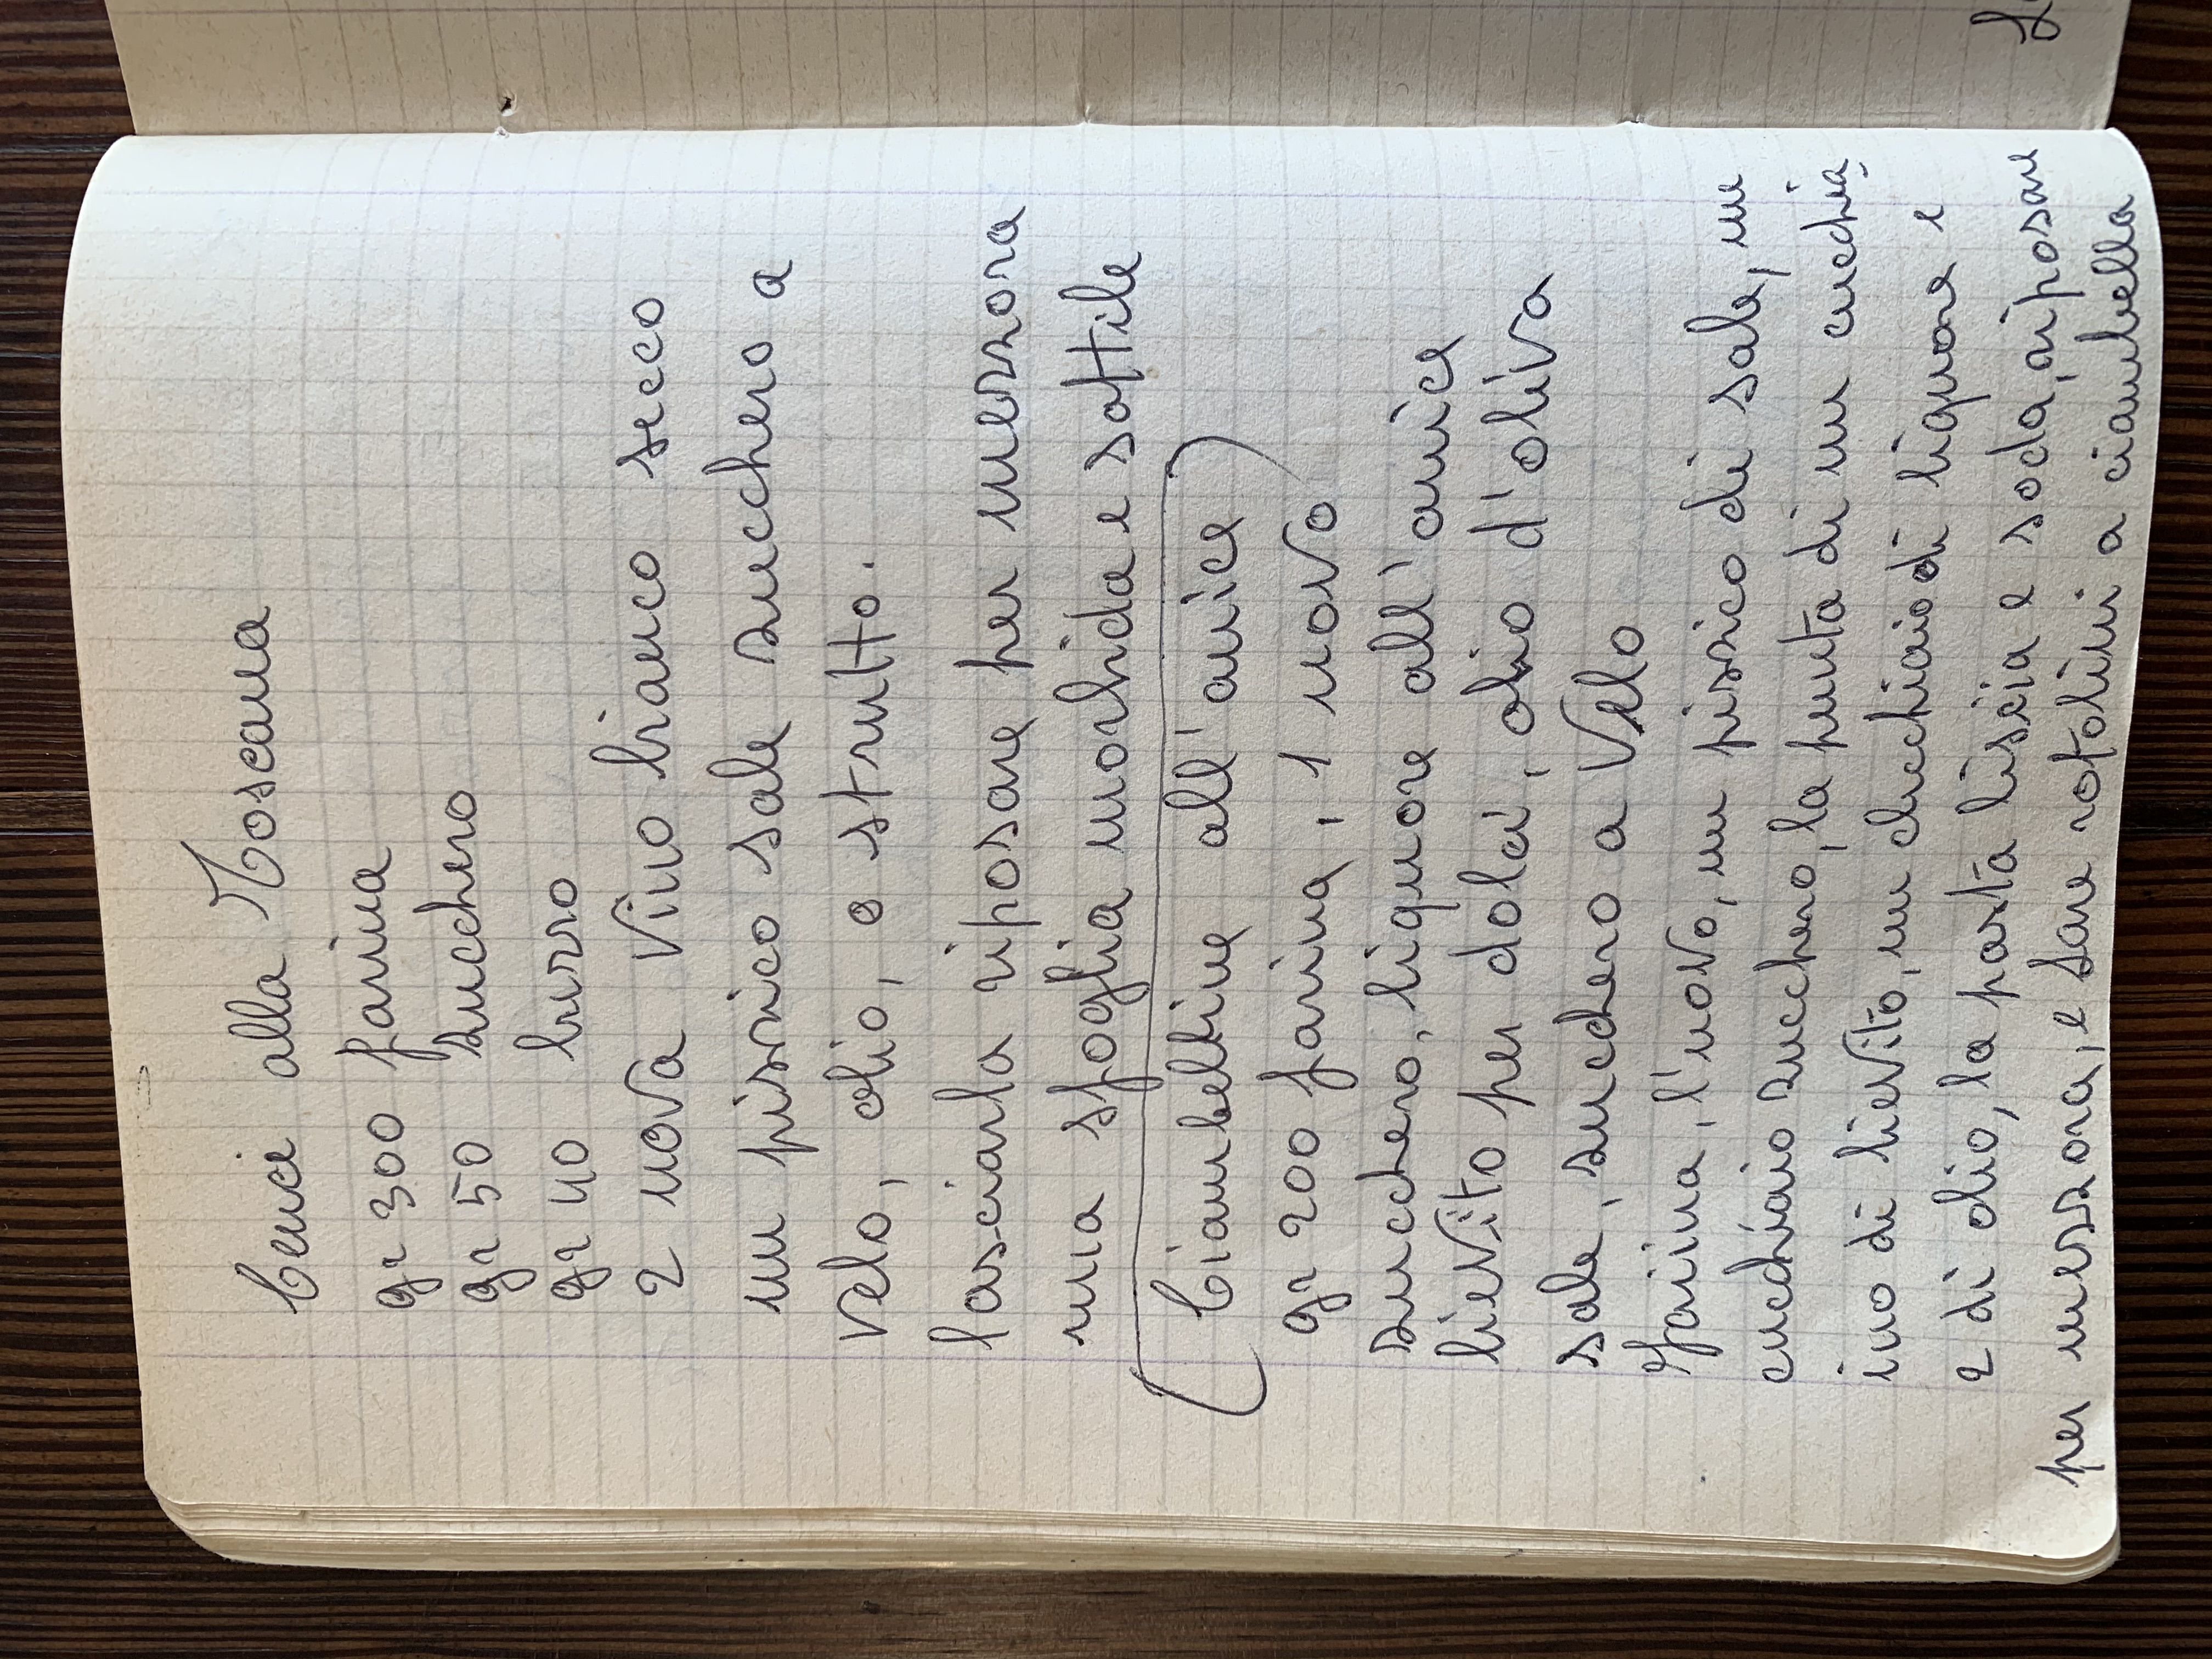 Cenci alla Toscana
gr 300 farina
gr 50 zucchero
gr 40 burro
2 uova vino bianco secco
un pizzico sale zucchero a
velo, olio, o strutto.
lasciarla riposare per mezzora
una sfoglia morbida e sottile
(Ciambelline all'anice)
gr 200 farina, 1 uovo
zucchero, liquore all'anice
lievito per dolci, olio d'oliva
sale, zucchero a Velo
Farina, l'uovo, un pizzico di sale, un
cucchiaio zucchero, la punta di un cucchia
ino di lievito, un cucchiaio di liquore e
2 di olio, la pasta liscia e soda, riposare
per mezzora, e fare rotolini a ciambella